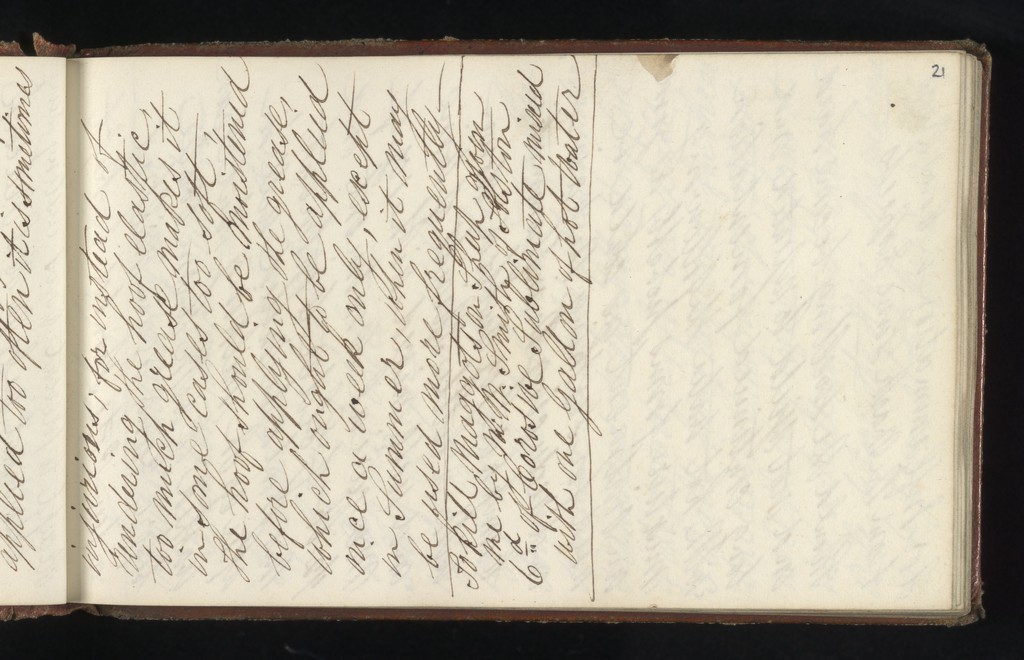 applied too often it is sometimes
injurious; for instead of
rendering the hoof elastic,
too much grease makes it
in some cases too soft.
The hoof should be moistened
before applying the grease,
which ought to be applied
once a week only, except
in Summer, when it may
be used more frequently—
To kill Maggots in Sheep given
me by Mr. Smith
6d of Corosive Sublimate mixed
with one Gallon of hot water
21